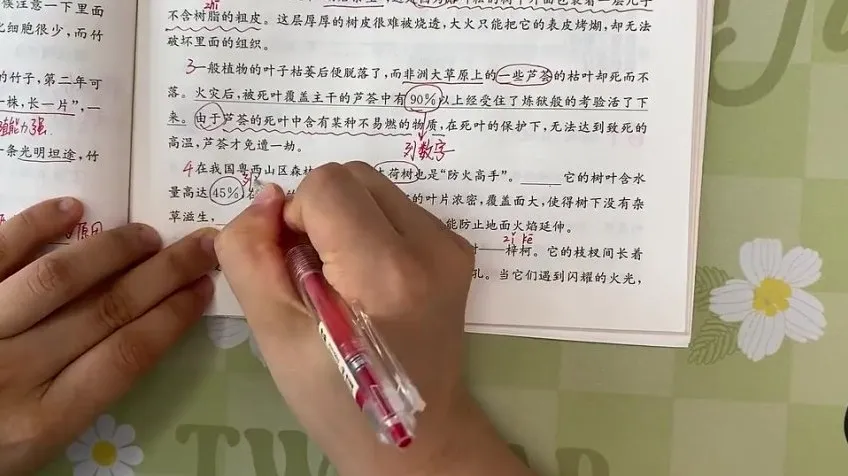 候注意一下里面
细胞很少，而竹
的竹子，第二年可
一株，长一片”，一
殖能力强
条光明坦途，竹
zhī
不含树脂的粗皮。这层厚厚的树皮很难被烧透，大火只能把它的表皮烤煳，却无法
破坏里面的组织。
3一般植物的叶子枯萎后便脱落了，而非洲大草原上的一些芦荟的枯叶却死而不
落。火灾后，被死叶覆盖主干的芦荟中有90%以上经受住了炼狱般的考验活了下
来。由于芦荟的死叶中含有某种不易燃的物质，在死叶的保护下，无法达到致死的
高温，芦荟才免遭一劫。
列数字
4在我国粤西山区森林
荷树也是“防火高手”。 它的树叶含水
量高达45%，在
的叶片浓密，覆盖面大，使得树下没有杂
草滋生，
能防止地面火焰延伸。
zǐ kē
——梓柯。它的枝杈间长着
孔。当它们遇到闪耀的火光，